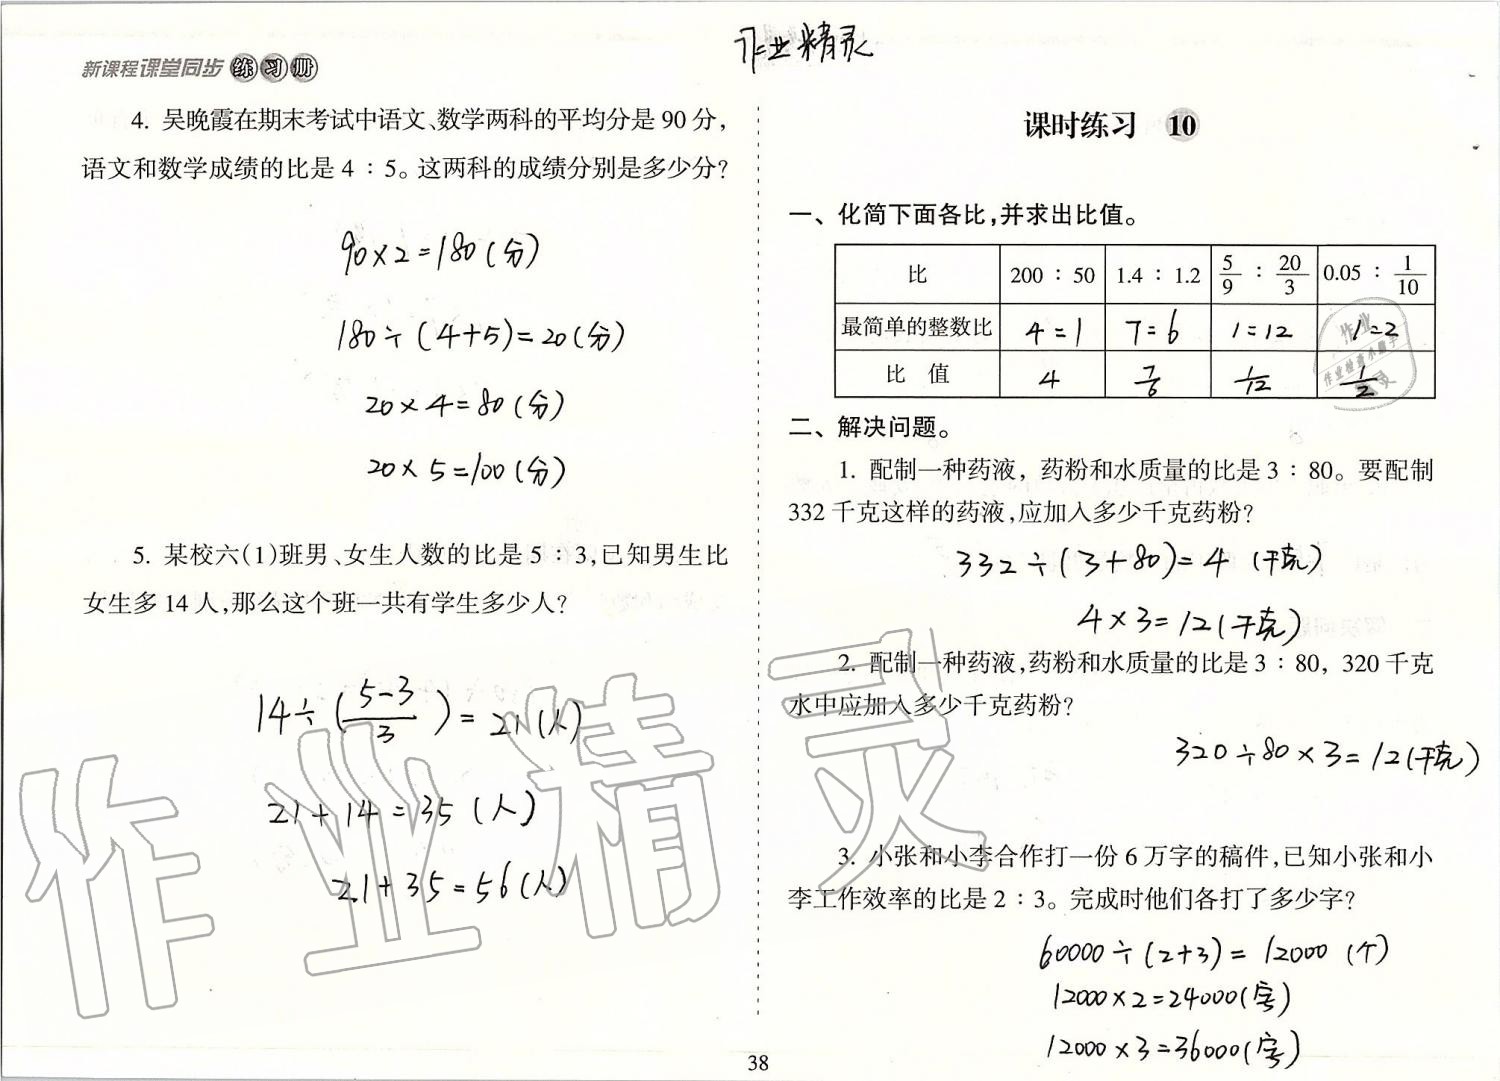 作业精灵
新课程课堂同步练习册
4. 吴晚霞在期末考试中语文、数学两科的平均分是 90 分,
语文和数学成绩的比是 4 : 5。这两科的成绩分别是多少分?
90×2=180(分)
180÷(4+5)=20(分)
20×4=80(分)
20×5=100(分)
5. 某校六(1)班男、女生人数的比是 5 : 3,已知男生比
女生多 14 人,那么这个班一共有学生多少人?
14÷(\frac{5-3}{3})=21(人)
21+14=35(人)
21+35=56(人)
课时练习 10
一、化简下面各比,并求出比值。
比 200 : 50 1.4 : 1.2 5/9 : 20/3 0.05 : 1/10
最简单的整数比 4=1 7=6 1=12 1=2
比 值 4 7/6 1/12 1/2
二、解决问题。
1. 配制一种药液, 药粉和水质量的比是 3 : 80。要配制
332 千克这样的药液,应加入多少千克药粉?
332÷(3+80)=4(千克)
4×3=12(千克)
2. 配制一种药液,药粉和水质量的比是 3 : 80, 320 千克
水中应加入多少千克药粉?
320÷80×3=12(千克)
3. 小张和小李合作打一份 6 万字的稿件,已知小张和小
李工作效率的比是 2 : 3。完成时他们各打了多少字?
60000÷(2+3)=12000(个)
12000×2=24000(字)
12000×3=36000(字)
38
作业精灵